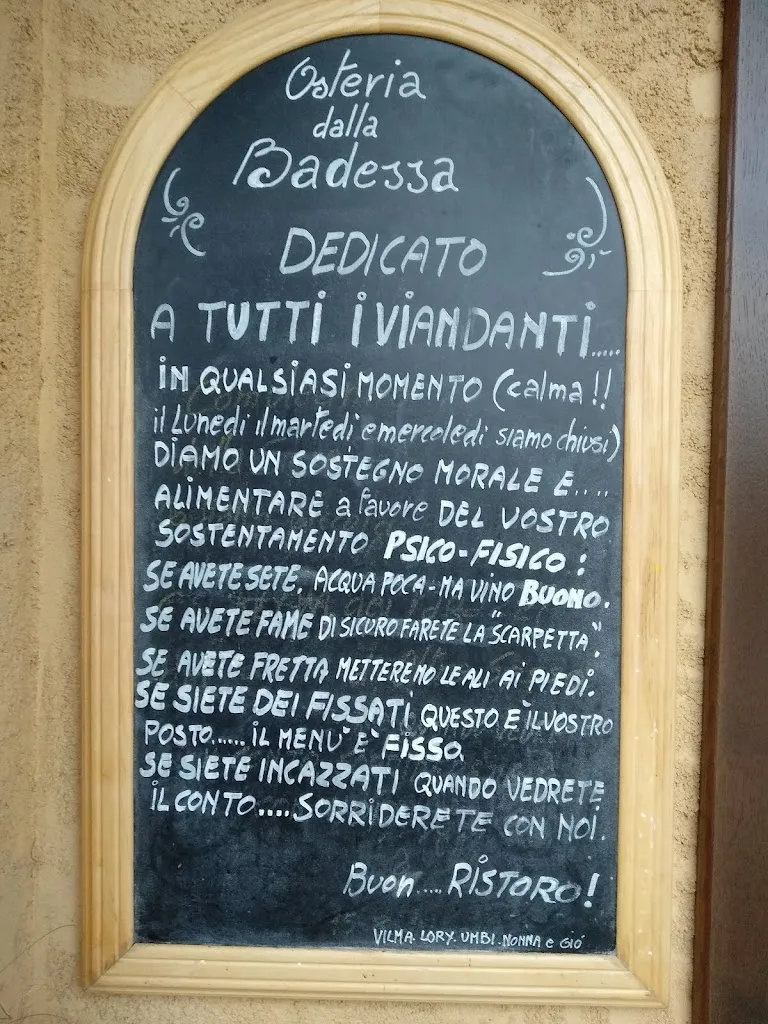 Osteria
dalla
Badessa
DEDICATO
A TUTTI I VIANDANTI.....
IN QUALSIASI MOMENTO (calma !!
il Lunedì il martedì e mercoledì siamo chiusi)
DIAMO UN SOSTEGNO MORALE E....
ALIMENTARE a favore DEL VOSTRO
SOSTENTAMENTO PSICO-FISICO:
SE AVETE SETE, ACQUA POCA - MA VINO BUONO.
SE AVETE FAME DI SICURO FARETE LA "SCARPETTA".
SE AVETE FRETTA METTEREMO LE ALI AI PIEDI.
SE SIETE DEI FISSATI QUESTO E' IL VOSTRO
POSTO..... IL MENU' E' FISSO.
SE SIETE INCAZZATI QUANDO VEDRETE
IL CONTO.... SORRIDERETE CON NOI.
Buon.... RISTORO!
VILMA. LORY. UMBI. NONNA e GIÓ